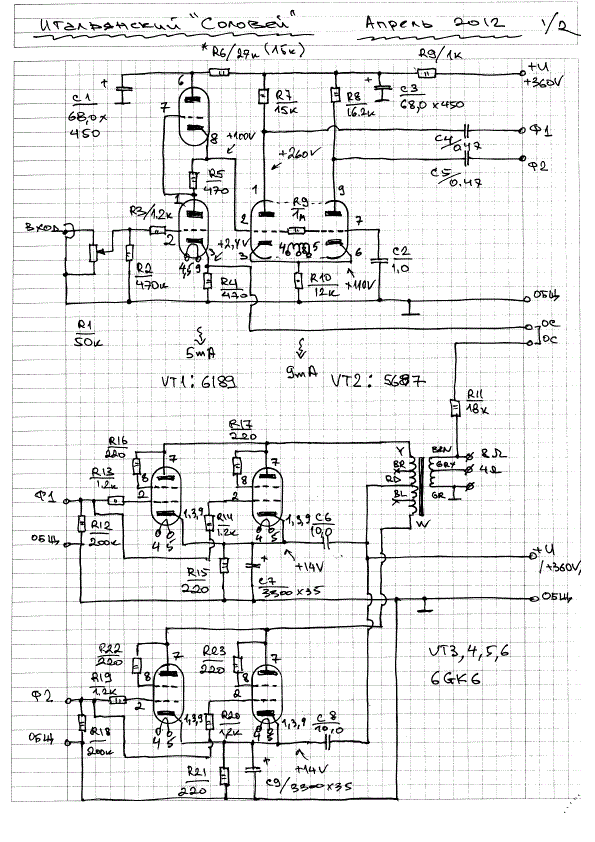 Итальянский "Соловей" Апрель 2012 1/2
*R6/27к (15к) R9/1к
+U
+360V
C1
68,0 x
450
6
7
8
R7
15к
R8
16.2к
C3
68,0 x 450
C4/0,47
Ф1
C5/0.47
Ф2
+100V
+260V
R5
470
ВХОД
R3/1.2к
1
2
3
4,5,9
+2,4V
R2
470к
R4
470
R1
50к
1
2
3
R9
1м
4 5
9
7
6
R10
12к
+110V
C2
1,0
ОБЩ
ОС
ОС
5mA
9mA
VT1: 6189 VT2: 5687
R11
18к
R16
220
R17
220
R13
1.2к
Ф1
ОБЩ
R12
200к
8
2
7
1,3,9
4 5
R14
1.2к
8
7
1,3,9
4 5
C6
10,0
R15
220
C7
3300x35
+14V
Y
BR
RD
BL
W
BRN
GRY
GR
8Ω
4Ω
+U
/+360V/
ОБЩ
R22
220
R23
220
R19
1.2к
Ф2
ОБЩ
R18
200к
8
2
7
1,3,9
4 5
R20
1.2к
8
7
1,3,9
4 5
C8
10,0
R21
220
C9/3300x35
+14V
VT3,4,5,6
6GK6